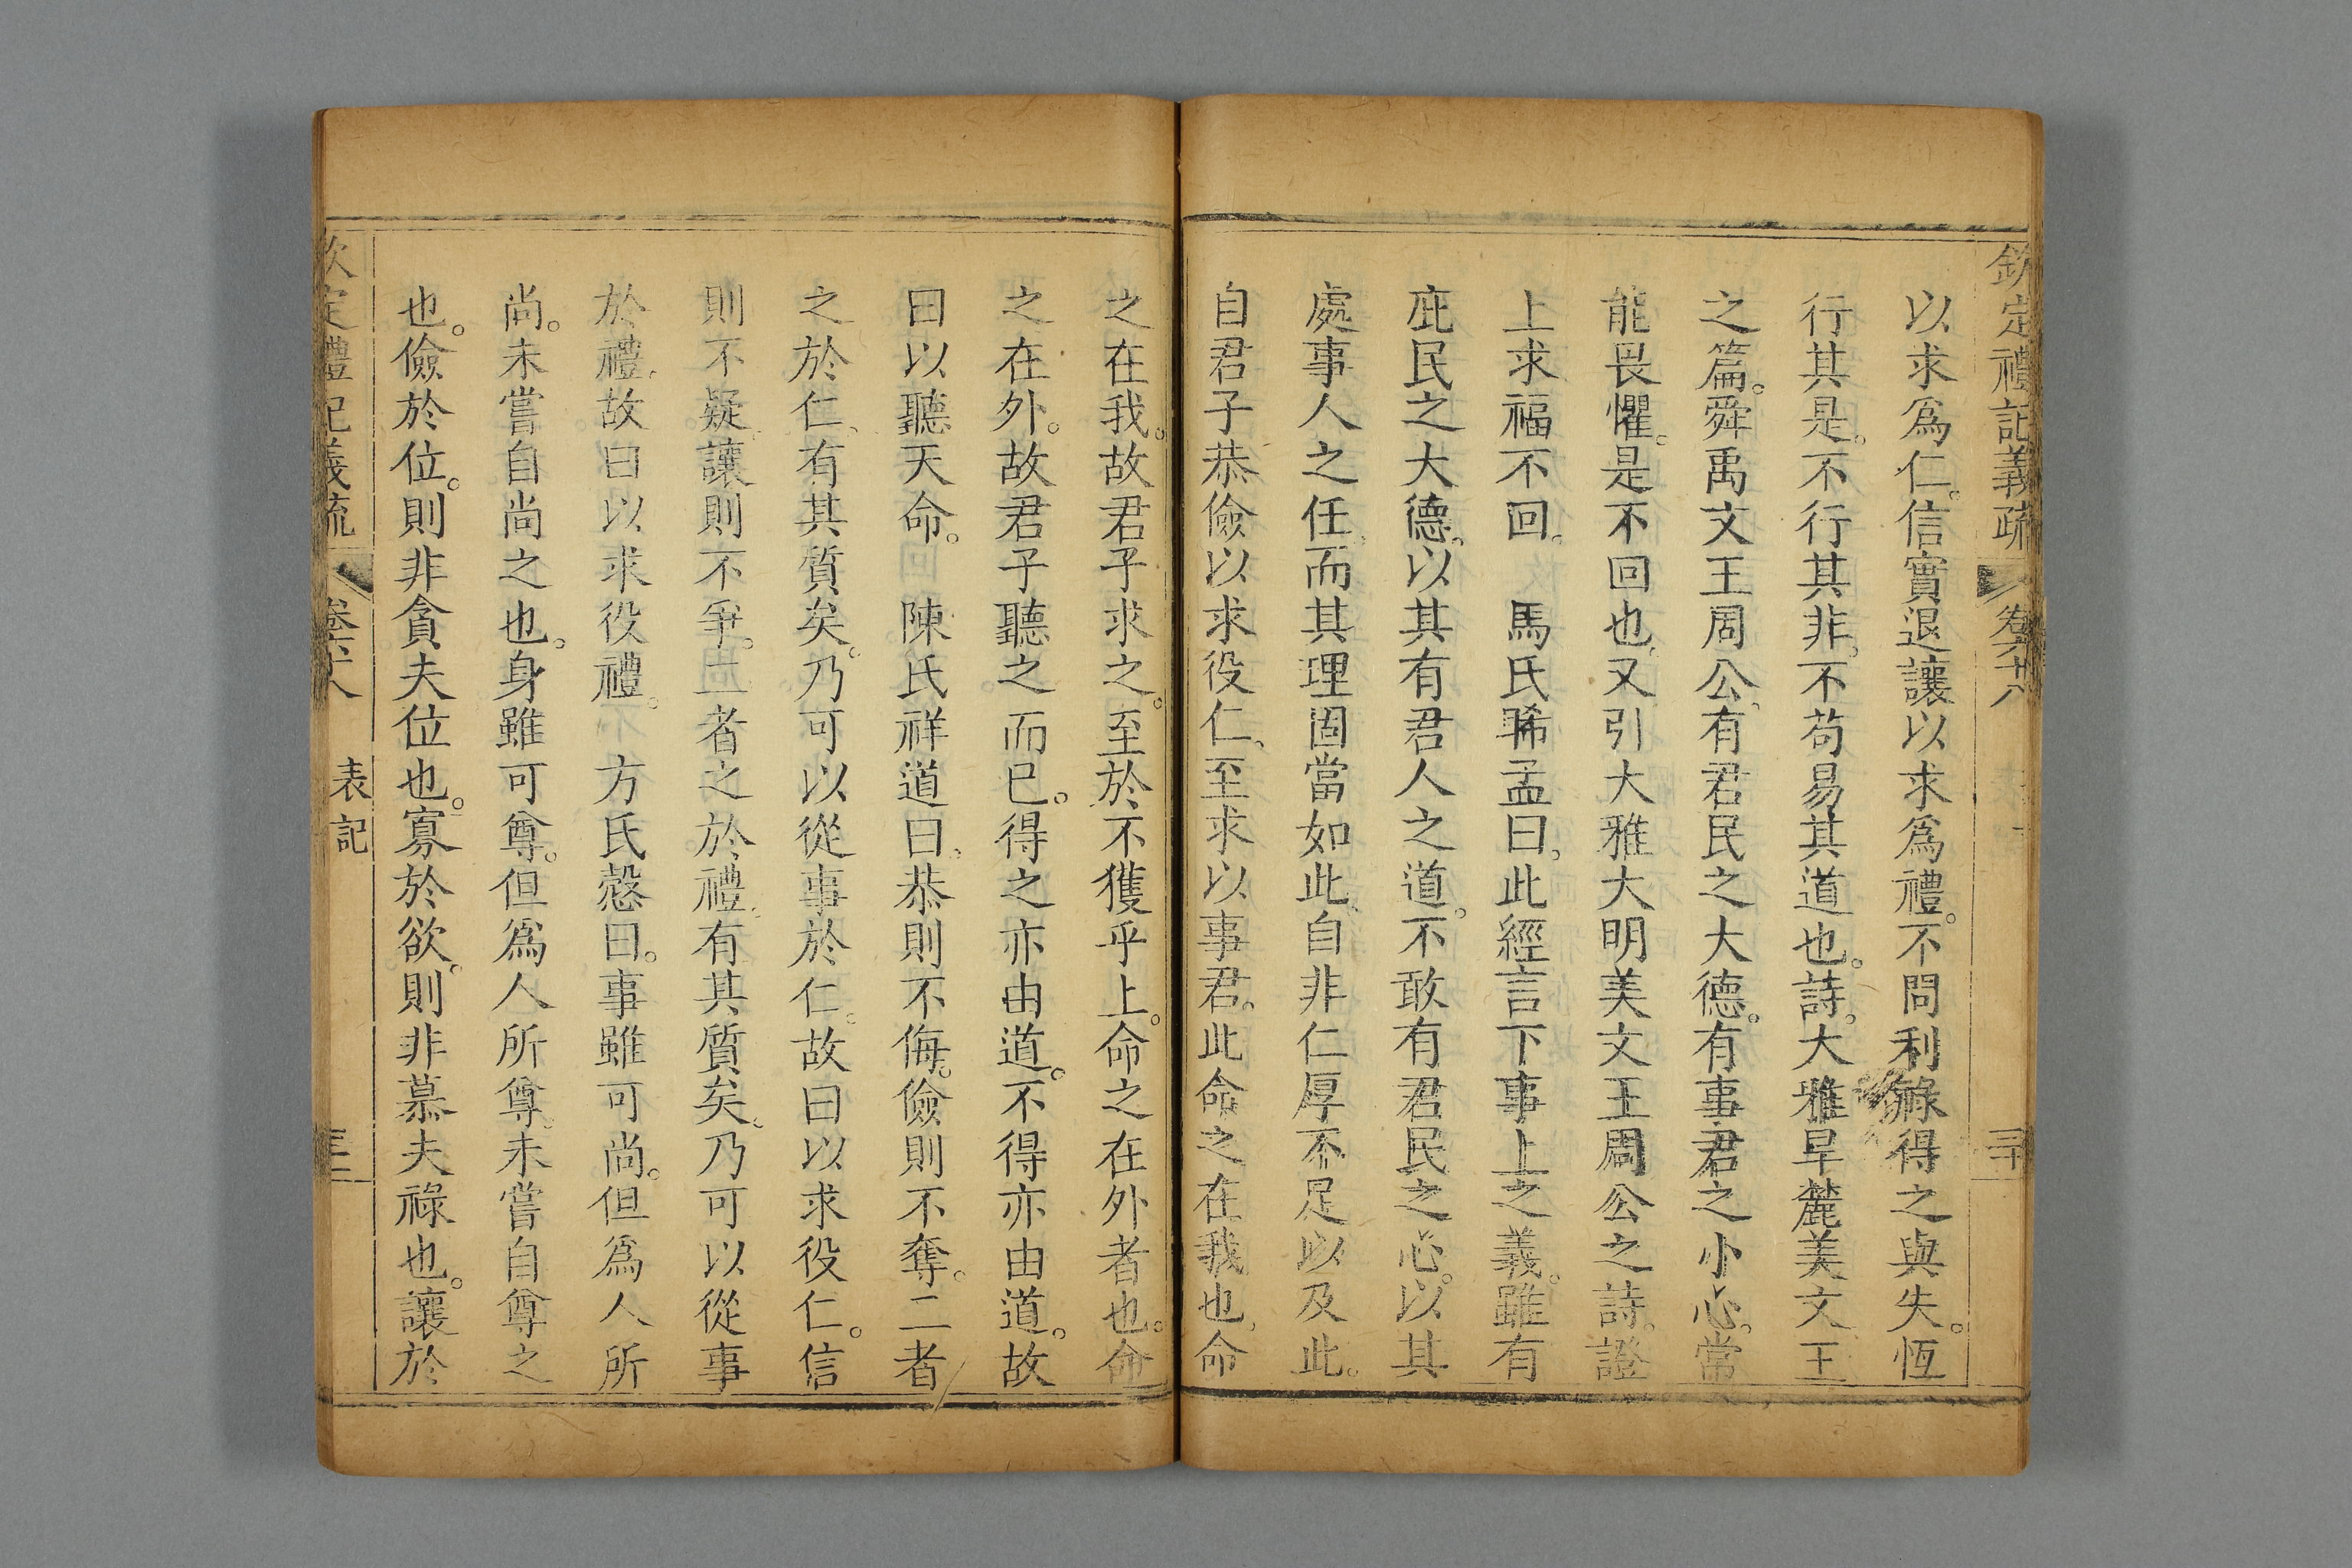 欽定禮記義疏 卷六十八 三十
以求爲仁。信實退讓以求爲禮。不問利祿得之與失。恆
行其是。不行其非。不苟易其道也。詩。大雅旱麓美文王
之篇。舜禹文王周公。有君民之大德。有事君之小心。常
能畏懼。是不回也。又引大雅大明美文王周公之詩。證
上求福不回。 馬氏晞孟曰。此經言下事上之義。雖有
庇民之大德。以其有君人之道。不敢有君民之心。以其
處事人之任。而其理固當如此。自非仁厚不足以及此。
自君子恭儉以求役仁。至求以事君。此命之在我也。命
之在我。故君子求之。至於不獲乎上。命之在外者也。命
之在外。故君子聽之而已。得之亦由道。不得亦由道。故
曰以聽天命。 陳氏祥道曰。恭則不侮。儉則不奪。二者
之於仁。有其質矣。乃可以從事於仁。故曰以求役仁。信
則不疑讓則不爭。二者之於禮。有其質矣。乃可以從事
於禮。故曰以求役禮。 方氏慤曰。事雖可尚。但爲人所
尚。未嘗自尚之也。身雖可尊。但爲人所尊。未嘗自尊之
也。儉於位。則非貪夫位也。寡於欲。則非慕夫祿也。讓於
欽定禮記義疏 卷六十八 表記